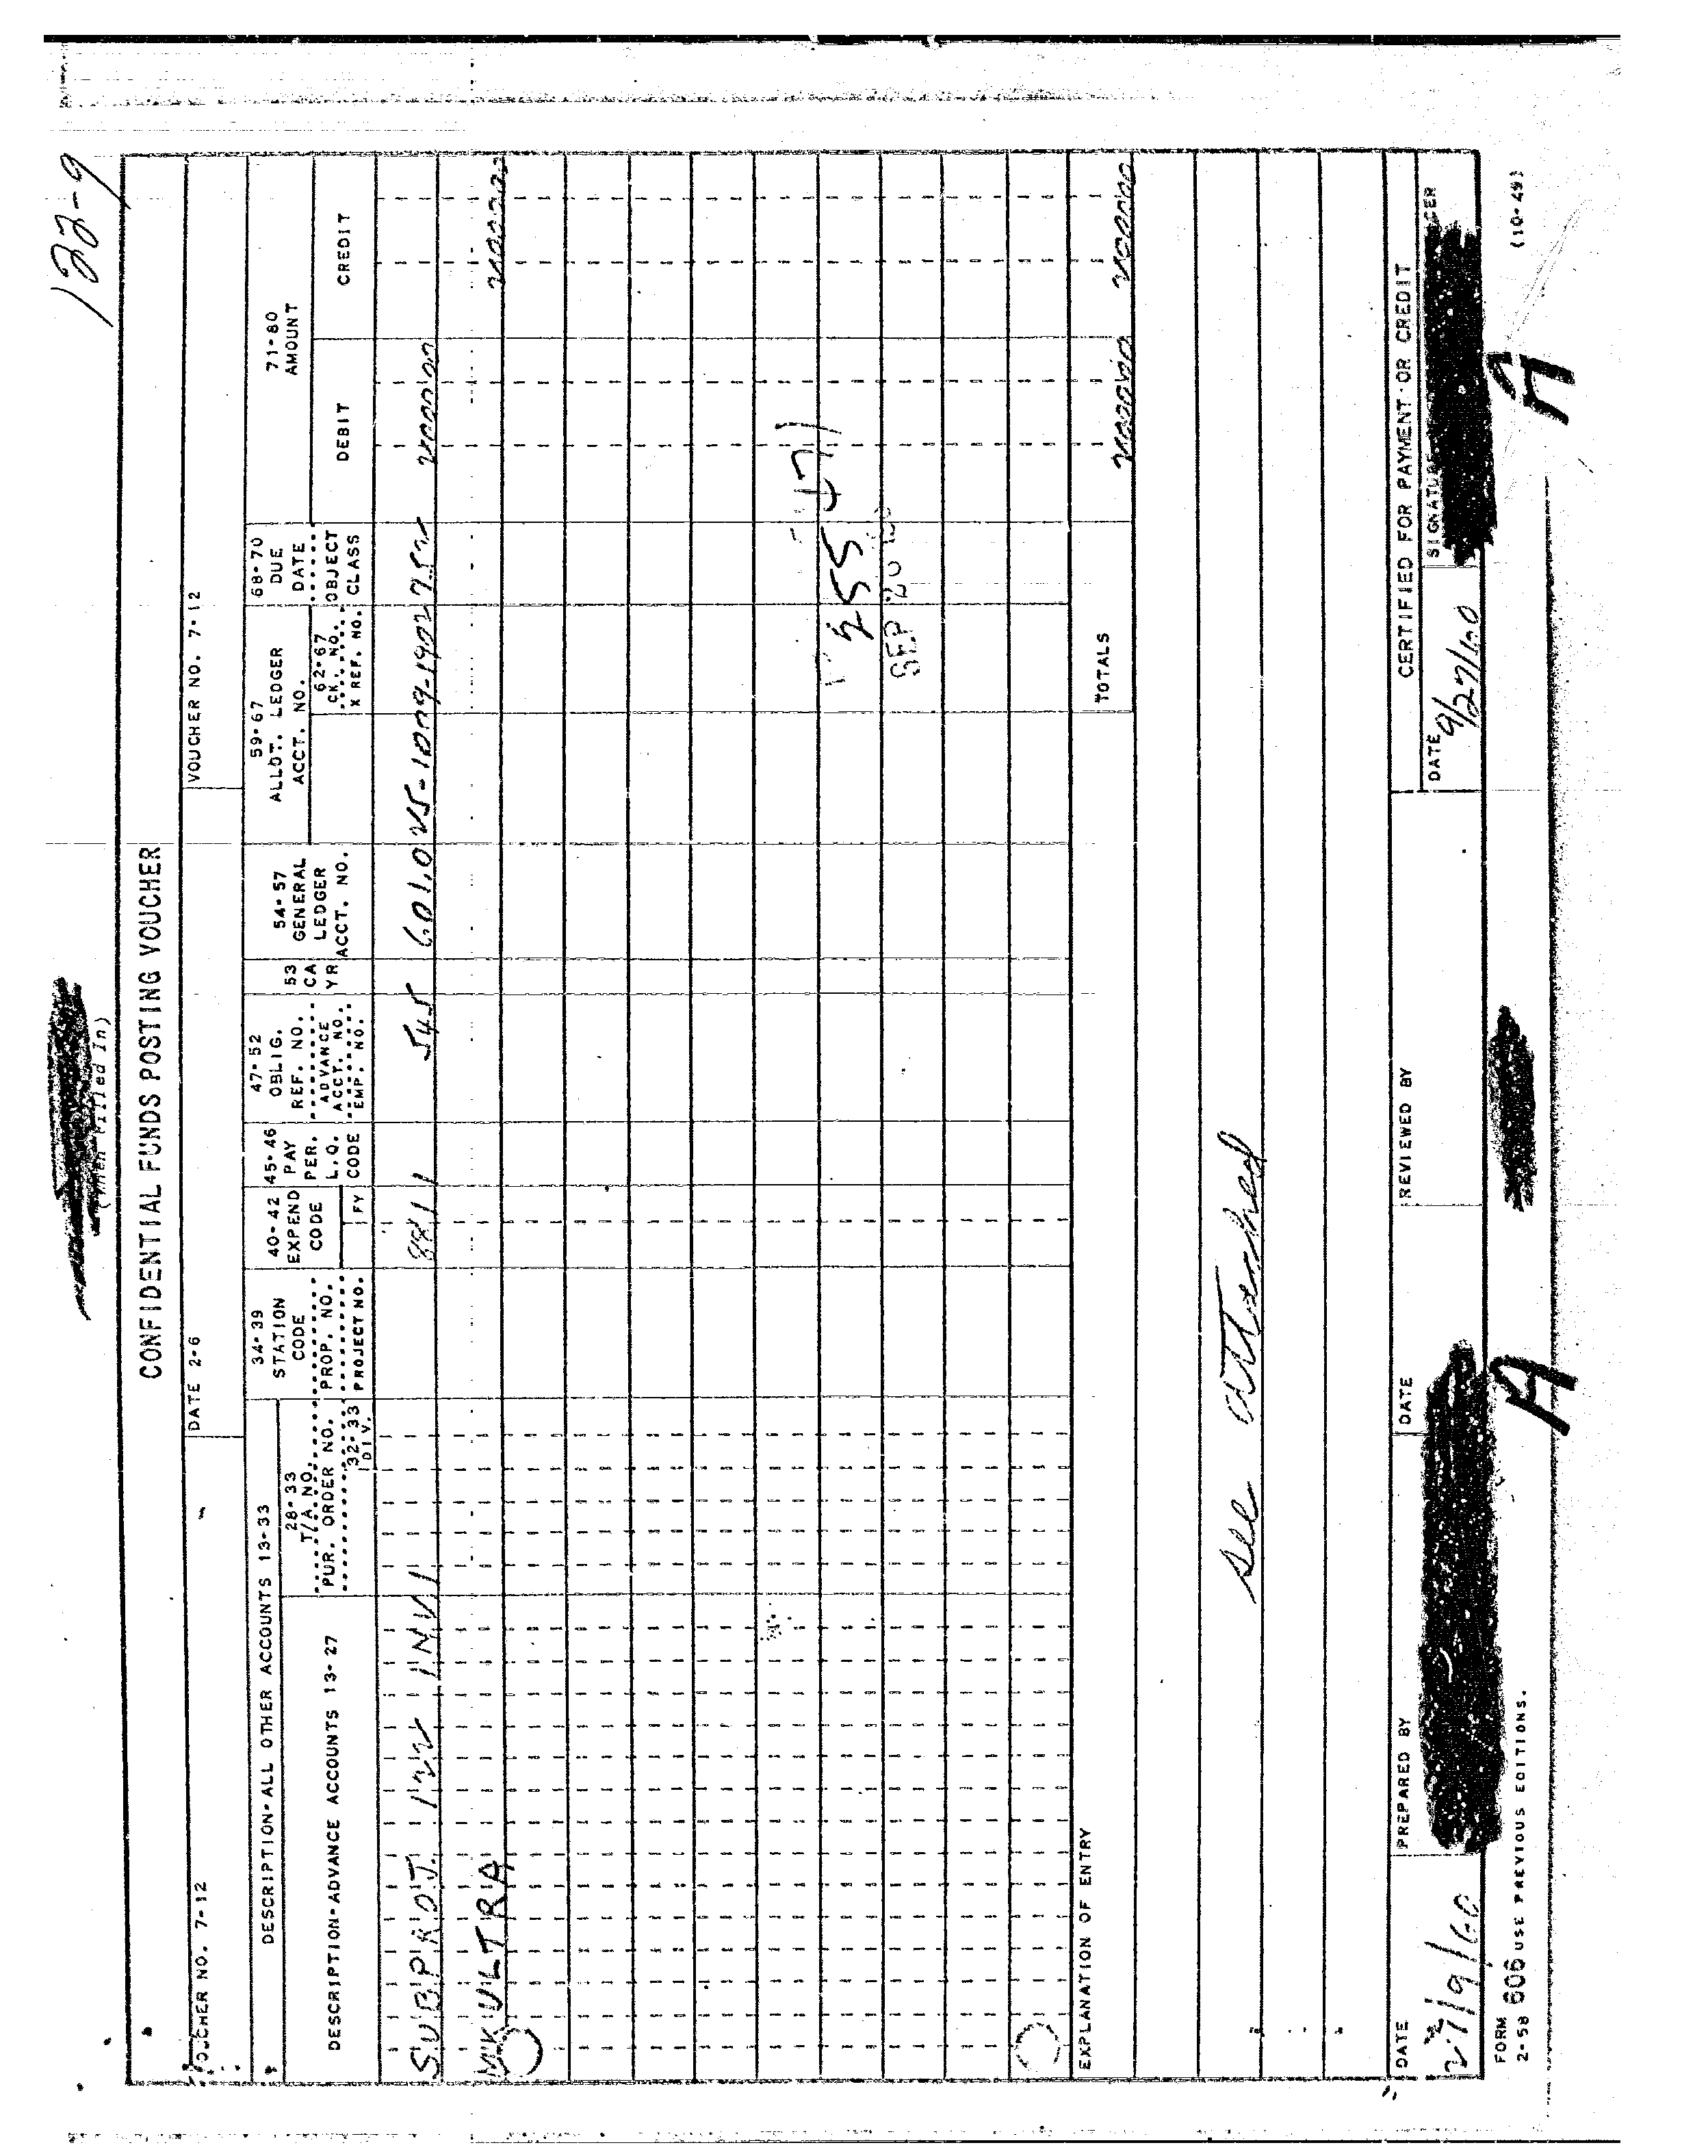 122-9
(When Filled In)
CONFIDENTIAL FUNDS POSTING VOUCHER
VOUCHER NO. 7-12
DATE 2-6
VOUCHER NO. 7-12
DESCRIPTION-ALL OTHER ACCOUNTS 13-33
DESCRIPTION-ADVANCE ACCOUNTS 13-27
28-33
T/A NO.
PUR. ORDER NO.
32-33
DIV.
34-39
STATION
CODE
PROP. NO.
PROJECT NO.
40-42
EXPEND
CODE
FY
45-46
PAY
PER.
L.Q.
CODE
47-52
OBLIG.
REF. NO.
ADVANCE
ACCT. NO.
EMP. NO.
53
CA
YR
54-57
GENERAL
LEDGER
ACCT. NO.
59-67
ALLOT. LEDGER
ACCT. NO.
62-67
CK. NO.
X REF. NO.
68-70
DUE
DATE
OBJECT
CLASS
71-80
AMOUNT
DEBIT
CREDIT
SUBPROJ. 122 INV 1
881 1
545
601.0
25-1009-1902
MKULTRA
SEP
TOTALS
EXPLANATION OF ENTRY
see attached
DATE
PREPARED BY
DATE
REVIEWED BY
CERTIFIED FOR PAYMENT OR CREDIT
DATE 9/27/60
A
A
FORM
2-58 606 USE PREVIOUS EDITIONS.
(10-49)